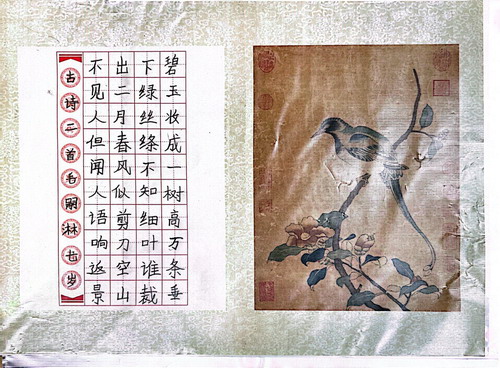 碧玉妆成一树高万条垂
下绿丝绦不知细叶谁裁
出二月春风似剪刀空山
不见人但闻人语响返景
古诗二首毛淋七岁